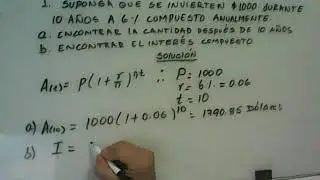 1. SUPONGA QUE SE INVIERTEN $1000 DURANTE
10 AÑOS A 6% COMPUESTO ANUALMENTE.
a. ENCONTRAR LA CANTIDAD DESPUES DE 10 AÑOS
b. ENCONTRAR EL INTERÉS COMPUESTO
SOLUCIÓN
A(t) = P(1 + r/n)^nt ∴ P = 1000
r = 6% = 0.06
t = 10
a) A(10) = 1000(1+0.06)^10 = 1790.85 DÓLARES
b) I =